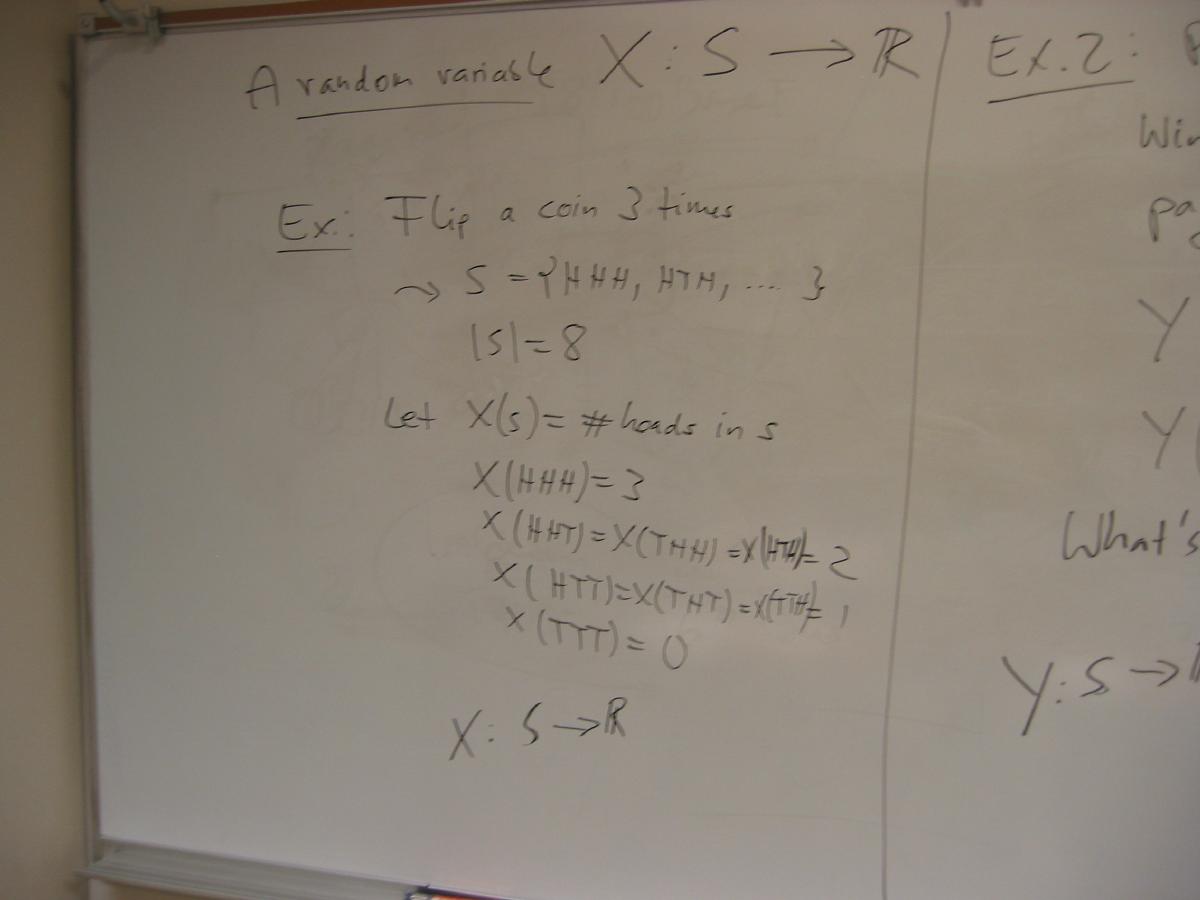 A random variable X : S → ℝ
Ex: Flip a coin 3 times
⇝ S = {HHH, HTH, .... }
|S| = 8
Let X(s) = # heads in s
X(HHH) = 3
X(HHT) = X(THH) = X(HTH) = 2
X(HTT) = X(THT) = X(TTH) = 1
X(TTT) = 0
X : S → ℝ
Ex. 2 :
Y
Y(
What's
Y : S →